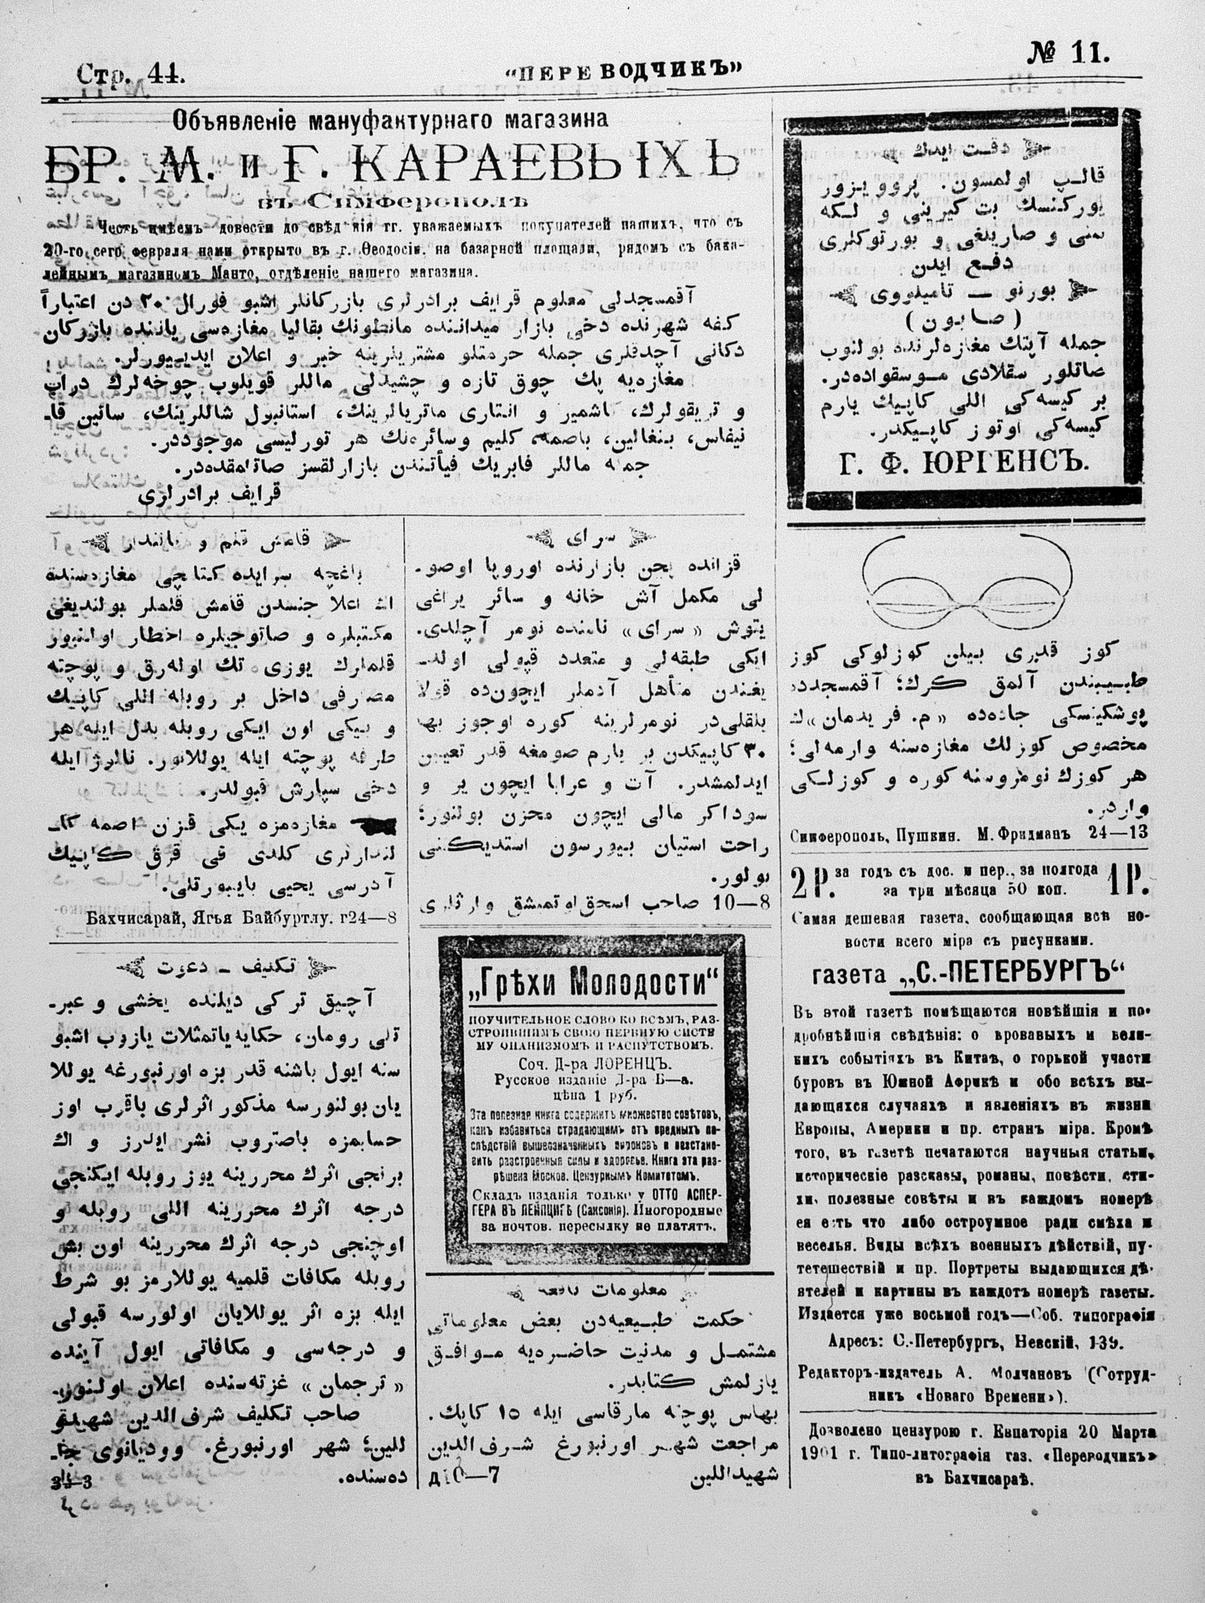 Стр. 44.
"ПЕРЕВОДЧИКЪ"
№ 11.
Объявленіе мануфактурнаго магазина
БР. М. и Г. КАРАЕВЫХЪ
въ Симферополѣ
Честь имѣемъ довести до свѣдѣнія гг. уважаемыхъ покупателей нашихъ, что съ
20-го сего февраля нами открыто въ г. Ѳеодосіи, на базарной площади, рядомъ съ бака-
лейнымъ магазиномъ Манто, отдѣленіе нашего магазина.
آقمسجدلی معلوم قرایف برادرلری بازرکانلر اشبو فورال ٢٠ دن اعتباراً
کفه شهرنده دخی بازار میداننده مانطونك بقالیا مغازه‌سی یاننده بازرکان
دکانی آچدقلری جمله حرمتلو مشتریلرینه خبر و اعلان ایدییورلر.
مغازه‌یه پك چوق تازه و چشیدلی ماللر قویلوب چوخه‌لرك دراپ
و تریقولرك، کاشمیر و انتاری ماتریاللرینك، استانبول شاللرینك، ساتین قا-
نیفاس، بنغالین، باصمه، کلیم وسائره‌نك هر تورلیسی موجوددر.
جمله ماللر فابریك فیأتندن بازارلقسز صاتلمقده‌در.
قرایف برادرلری
دقت ایدك
قالپ اولمسون. پروویزور
یورکنسك بت کیرینی و لکه
سنی و صاریلغی و بورتوکلری
دفع ایدن
بورنو — تامیلووی
(صابون)
جمله آپتك مغازه‌لرنده بولنوب
صاتلور سقلادی موسقواده‌در.
بر کیسه‌کی اللی کاپیك یارم
کیسه‌کی اوتوز کاپیکدر.
Г. Ф. ЮРГЕНСЪ.
قامش قلم و قالندار
باغچه سرایده کتابچی مغازه‌سنده
اك اعلا جنسدن قامش قلملر بولندیغی
مکتبلره و صاتوجیلره اخطار اولنیور
قلمارك یوزی تك اوله‌رق و پوچته
مصرفی داخل بر روبله اللی کاپیك
و بیکی اون ایکی روبله بدل ایله هر
طرفه پوچته ایله یوللانور. نالوژ ایله
دخی سپارش قبولدر.
مغازه‌مزه یکی قزان اصمه کا-
لندارلری کلدی فی قرق کاپیك
آدرسی یحیی بایبورتلی.
Бахчисарай, Ягъя Байбуртлу. г24—8
سرای
قزانده پچن بازارنده اوروپا اوصو-
لی مکمل آش خانه و سائر یراغی
یتوش «سرای» نامنده نومر آچلدی.
ایکی طبقه‌لی و متعدد قپولی اولد-
یغندن متأهل آدملر ایچون‌ده قولا
یلقلی‌در نومرلرینه کوره اوجوز بها
٣٠ کاپیکدن بر یارم صومغه قدر تعیین
ایدلمشدر. آت و عرابا ایچون یر و
سوداکر مالی ایچون مخزن بولنور؛
راحت استیان بیورسون استدیکنی
بولور.
10—8 صاحب اسحق اوتمیشق وارثلری
کوز قدری بیلن کوزلوکی کوز
طبیبندن آلمق کرك؛ آقمسجدده
پوشکینسکی جاده‌ده «م. فریدمان»ك
مخصوص کوزلك مغازه‌سنه وارمه‌لی؛
هر کوزك نومروسنه کوره و کوزلکی
واردر.
Симферополь, Пушкин. М. Фридманъ 24—13
2 Р. за годъ съ дос. и пер., за полгода 1 Р.
за три мѣсяца 50 коп.
Самая дешевая газета, сообщающая всѣ но-
вости всего міра съ рисунками.
газета „С.-ПЕТЕРБУРГЪ“
Въ этой газетѣ помѣщаются новѣйшія и по-
дробнѣйшія свѣдѣнія: о кровавыхъ и вели-
кихъ событіяхъ въ Китаѣ, о горькой участи
буровъ въ Южной Африкѣ и обо всѣхъ вы-
дающихся случаяхъ и явленіяхъ въ жизни
Европы, Америки и пр. странъ міра. Кромѣ
того, въ газетѣ печатаются научныя статьи,
историческіе разсказы, романы, повѣсти, сти-
хи, полезные совѣты и въ каждомъ номерѣ
ея есть что либо остроумное ради смѣха и
веселья. Виды всѣхъ военныхъ дѣйствій, пу-
тешествій и пр. Портреты выдающихся дѣ-
ятелей и картины въ каждомъ номерѣ газеты.
Издается уже восьмой годъ—Соб. типографія
Адресъ: С.-Петербургъ, Невскій, 139.
Редакторъ-издатель А. Молчановъ (Сотруд-
никъ «Новаго Времени»).
Дозволено цензурою г. Евпаторія 20 Марта
1901 г. Типо-литографія газ. «Переводчикъ»
въ Бахчисараѣ.
تکلیف — دعوت
آچیق ترکی دیلنده یخشی و عبر-
تلی رومان، حکایه یاتمثلات یازوب اشبو
سنه ایول باشنه قدر بزه اورنبورغه یوللا
یان بولنورسه مذکور اثرلری باقرب اوز
حسابمزه باصتروب نشر ایدرز و اك
برنجی اثرك محررینه یوز روبله ایکنجی
درجه اثرك محررینه اللی روبله و
اوچنجی درجه اثرك محررینه اون بش
روبله مکافات قلمیه یوللارمز بو شرط
ایله بزه اثر یوللایان اولورسه قبولی
و درجه‌سی و مکافاتی ایول آینده
«ترجمان» غزته‌سنده اعلان اولنور.
صاحب تکلیف شرف الدین شهیدو
للین؛ شهر اورنبورغ. وودیانوی جا-
ده‌سنده.
3—3
„Грѣхи Молодости“
ПОУЧИТЕЛЬНОЕ СЛОВО КО ВСѢМЪ, РАЗ-
СТРОИВШИМЪ СВОЮ НЕРВНУЮ СИСТЕ
МУ ОНАНИЗМОМЪ И РАСПУТСТВОМЪ.
Соч. Д-ра ЛОРЕНЦЪ.
Русское изданіе Д-ра Б—а.
цѣна 1 руб.
Эта полезная книга содержитъ множество совѣтовъ,
какъ избавиться страдающимъ отъ вредныхъ по-
слѣдствій вышеозначенныхъ пороковъ и возстано-
вить разстроенныя силы и здоровье. Книга эта раз-
рѣшена Москов. Цензурнымъ Комитетомъ.
Складъ изданія только у ОТТО АСПЕР-
ГЕРА ВЪ ЛЕЙПЦИГѢ (Саксонія). Иногородные
за почтов. пересылку не платятъ.
معلومات نافعه
حکمت طبیعیه‌دن بعض معلوماتی
مشتمل و مدنیت حاضره‌یه موافق
یازلمش کتابدر.
بهاس پوچته مارقاسی ایله ١٥ کاپك.
مراجعت شهر اورنبورغ شرف الدین
شهیداللین
10—7